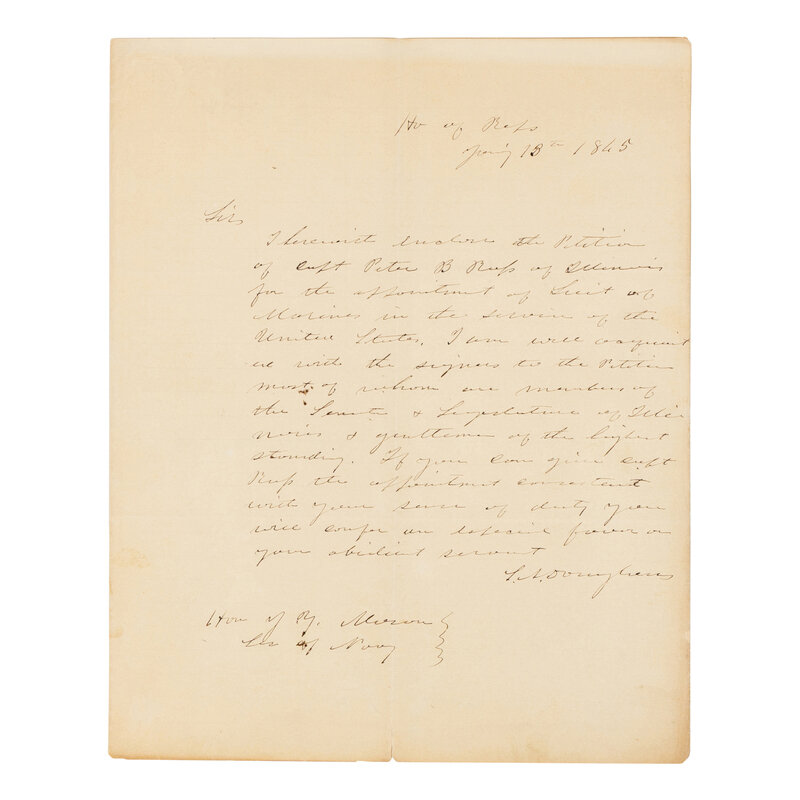 Ho of Reps
Jany 13th 1845
Sir
I herewith enclose the Petition
of Capt Peter B Russ of Illinois
for the appointment of Lieut of
Marines in the service of the
United States. I am well acquaint
ed with the signers to the Petition
most of whom are members of
the Senate & Legislature of Illi
nois & gentlemen of the highest
standing. If you can give Capt
the appointment consistent
with your sense of duty you
will confer an especial favor on
your obedient servant
S. A. Douglass
Hon J Y. Mason
Sec of Navy